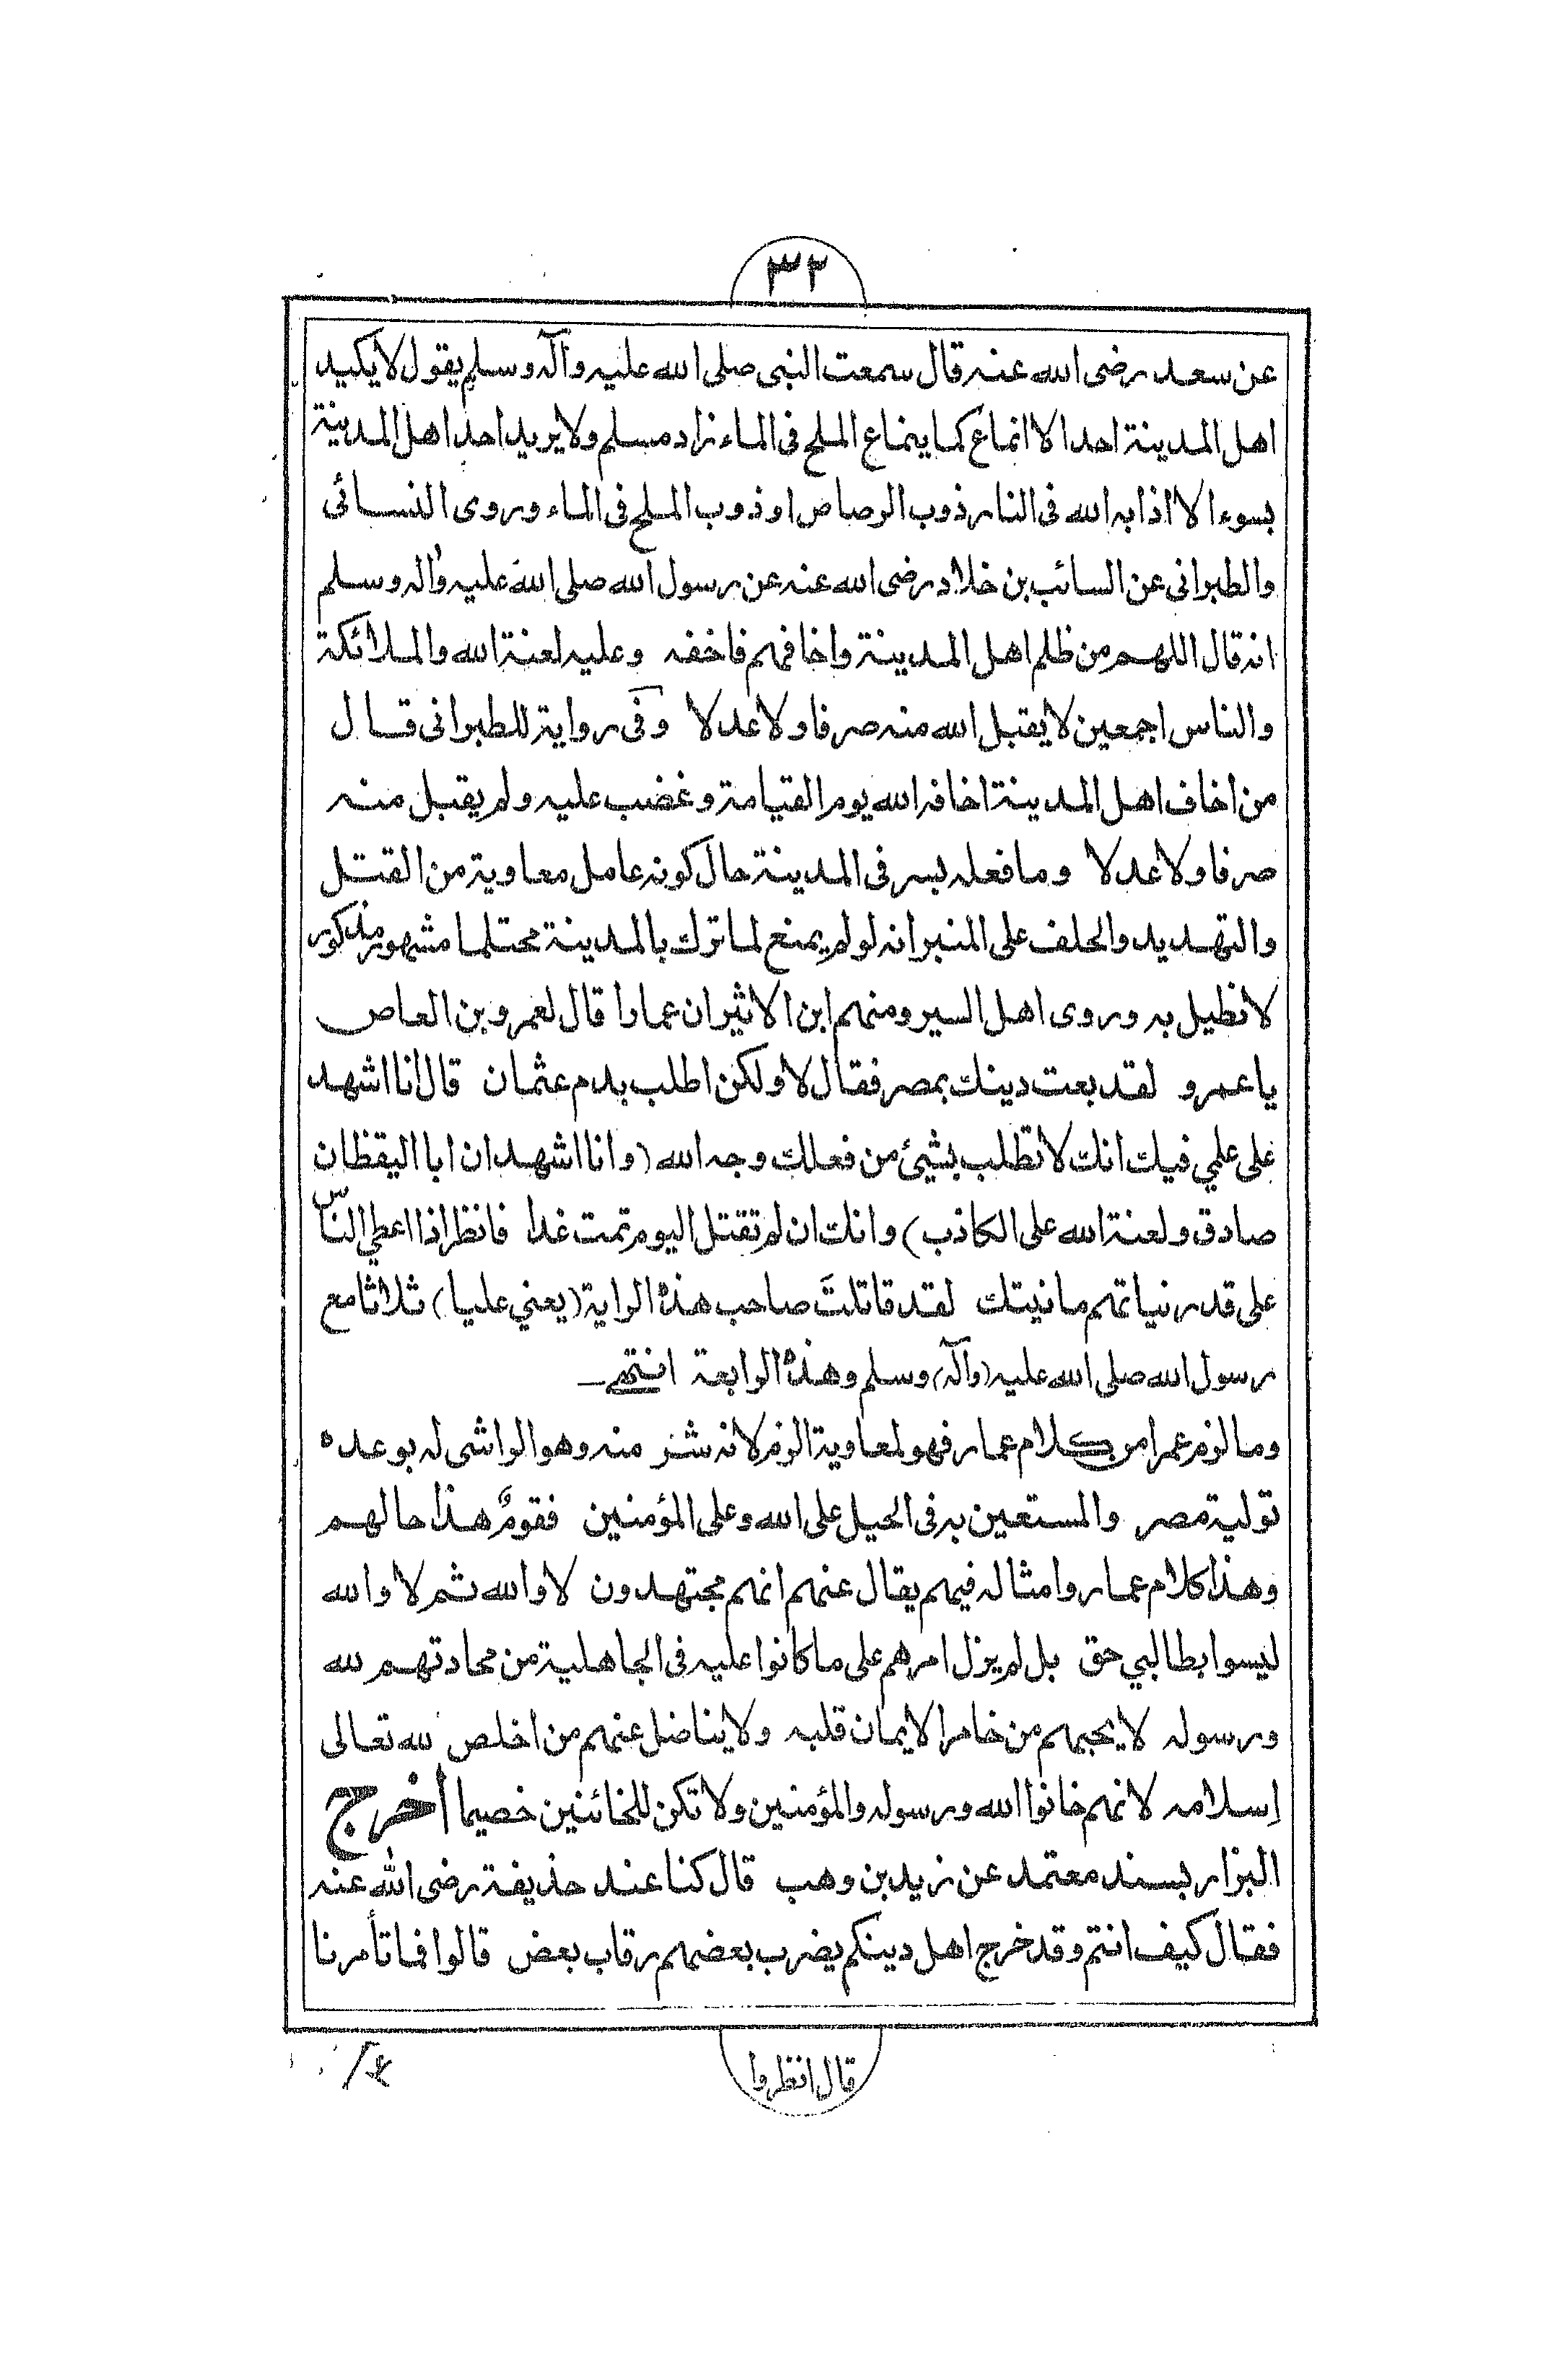 ٣٢
عن سعد رضى الله عنه قال سمعت النبى صلى الله عليه وآله وسلم يقول لا يكيد
اهل المدينة احد الا انماع كما ينماع الملح فى الماء زاد مسلم ولا يريد احد اهل المدينة
بسوء الا اذابه الله فى النار ذوب الرصاص او ذوب الملح فى الماء وروى النسائى
والطبرانى عن السائب بن خلاد رضى الله عنه عن رسول الله صلى الله عليه واله وسلم
انه قال اللهم من ظلم اهل المدينة واخافهم فاخفه وعليه لعنة الله والملائكة
والناس اجمعين لا يقبل الله منه صرفا ولا عدلا وفى رواية للطبرانى قال
من اخاف اهل المدينة اخافه الله يوم القيامة وغضب عليه ولم يقبل منه
صرفا ولا عدلا وما فعله بسر فى المدينة حال كونه عامل معاوية من القتل
والتهديد والحلف على المنبر انه لو لم يمنع لما ترك بالمدينة محتلما مشهور مذكور
لا نطيل به وروى اهل السير ومنهم ابن الاثير ان عمارا قال لعمرو بن العاص
يا عمرو لقد بعت دينك بمصر فقال لا ولكن اطلب بدم عثمان قال انا اشهد
على علمي فيك انك لا تطلب بشيئ من فعلك وجه الله (وانا اشهد ان ابا اليقظان
صادق ولعنة الله على الكاذب) وانك ان لم تقتل اليوم تمت غدا فانظر اذا اعطي الناسّ
على قدر نياتهم ما نيتك لقد قاتلتَ صاحب هذه الراية (يعني عليا) ثلاثا مع
رسول الله صلى الله عليه (وآله) وسلم وهذه الرابعة انتهى
وما لزم عمرا من كلام عمار فهو لمعاوية الزم لانه منه وهو الراشى له بوعده
تولية مصر والمستعين به فى الحيل على الله وعلى المؤمنين فقومٌ هذا حالهم
وهذا كلام عمار وامثاله فيهم يقال عنهم انهم مجتهدون لا والله ثم لا والله
ليسوا بطالبي حق بل لم يزل امرهم على ما كانوا عليه فى الجاهلية من محادتهم لله
ورسوله لا يحبهم من خامر الايمان قلبه ولا يناضل عنهم من اخلص لله تعالى
اِسلامه لانهم خانوا الله ورسوله والمؤمنين ولا تكن للخائنين خصيما أخرج
البزار بسند معتمد عن زيد بن وهب قال كنا عند حذيفة رضى الله عنه
فقال كيف انتم وقد خرج اهل دينكم يضرب بعضهم رقاب بعض قالوا فما تأمرنا
قال انظروا